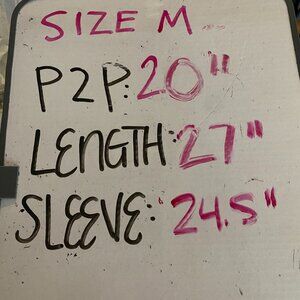 SIZE M
P2P: 20"
LENGTH: 27"
SLEEVE: 24.5"